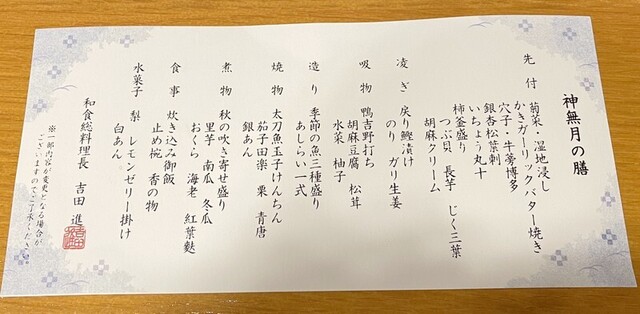 神無月の膳
先付 菊菜・湿地浸し
かきガーリックバター焼き
穴子・牛蒡博多
銀杏松葉刺
いちょう丸十
柿釜盛り
つぶ貝 長芋 じく三葉
胡麻クリーム
凌ぎ 戻り鰹漬け
のり ガリ生姜
吸物 鴨吉野打ち
胡麻豆腐 松茸
水菜 柚子
造り 季節の魚三種盛り
あしらい一式
焼物 太刀魚玉子けんちん
茄子田楽 栗 青唐
銀あん
煮物 秋の吹き寄せ盛り
里芋 南瓜 冬瓜
おくら 海老 紅葉麩
食事 炊き込み御飯
止め椀 香の物
水菓子 梨 レモンゼリー掛け
白あん
和食総料理長 吉田 進
※一部内容が変更となる場合が
ございますのでご了承ください。